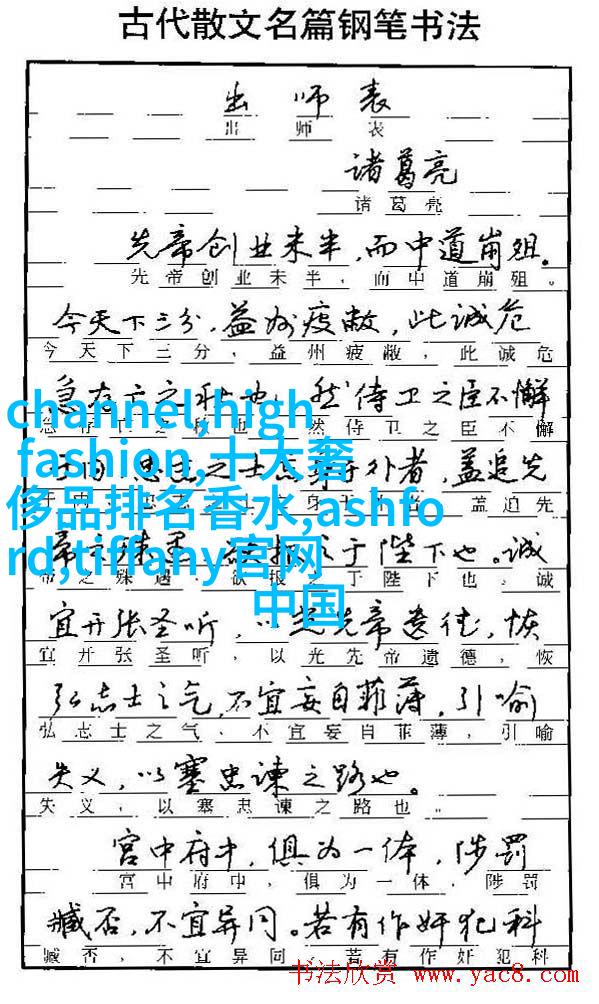 古代散文名篇钢笔书法
出师表
出师表
诸葛亮
诸葛亮
先帝创业未半,而中道崩殂。
先帝创业未半,而中道崩殂。
今天下三分,益州疲敝,此诚危
今天下三分,益州疲敝,此诚危
急存亡之秋也 然侍卫之臣不懈
也 然侍卫之臣不懈
channel,high
fashion,十大奢
侈品排名香水,ashfo
rd,tiffany官网
中国
之士 外者,盖追先
身 盖追先
帝之殊遇 欲报之于陛下也。诚
帝之殊遇,欲报之于陛下也,诚
宜开张圣听,以光先帝遗德,恢
宜开张圣听,以光先帝遗德,恢
弘志士之气,不宜妄自菲薄,引喻
弘志士之气,不宜妄自菲薄,引喻
失义,以塞忠谏之路也。
失义,以塞忠谏之路也。
宫中府中,俱为一体,陟罚
宫中府中,俱为一体,陟罚
臧否,不宜异同。若有作奸犯科
臧否,不宜异同。若有作奸犯科
书法欣赏 www.yac8.com